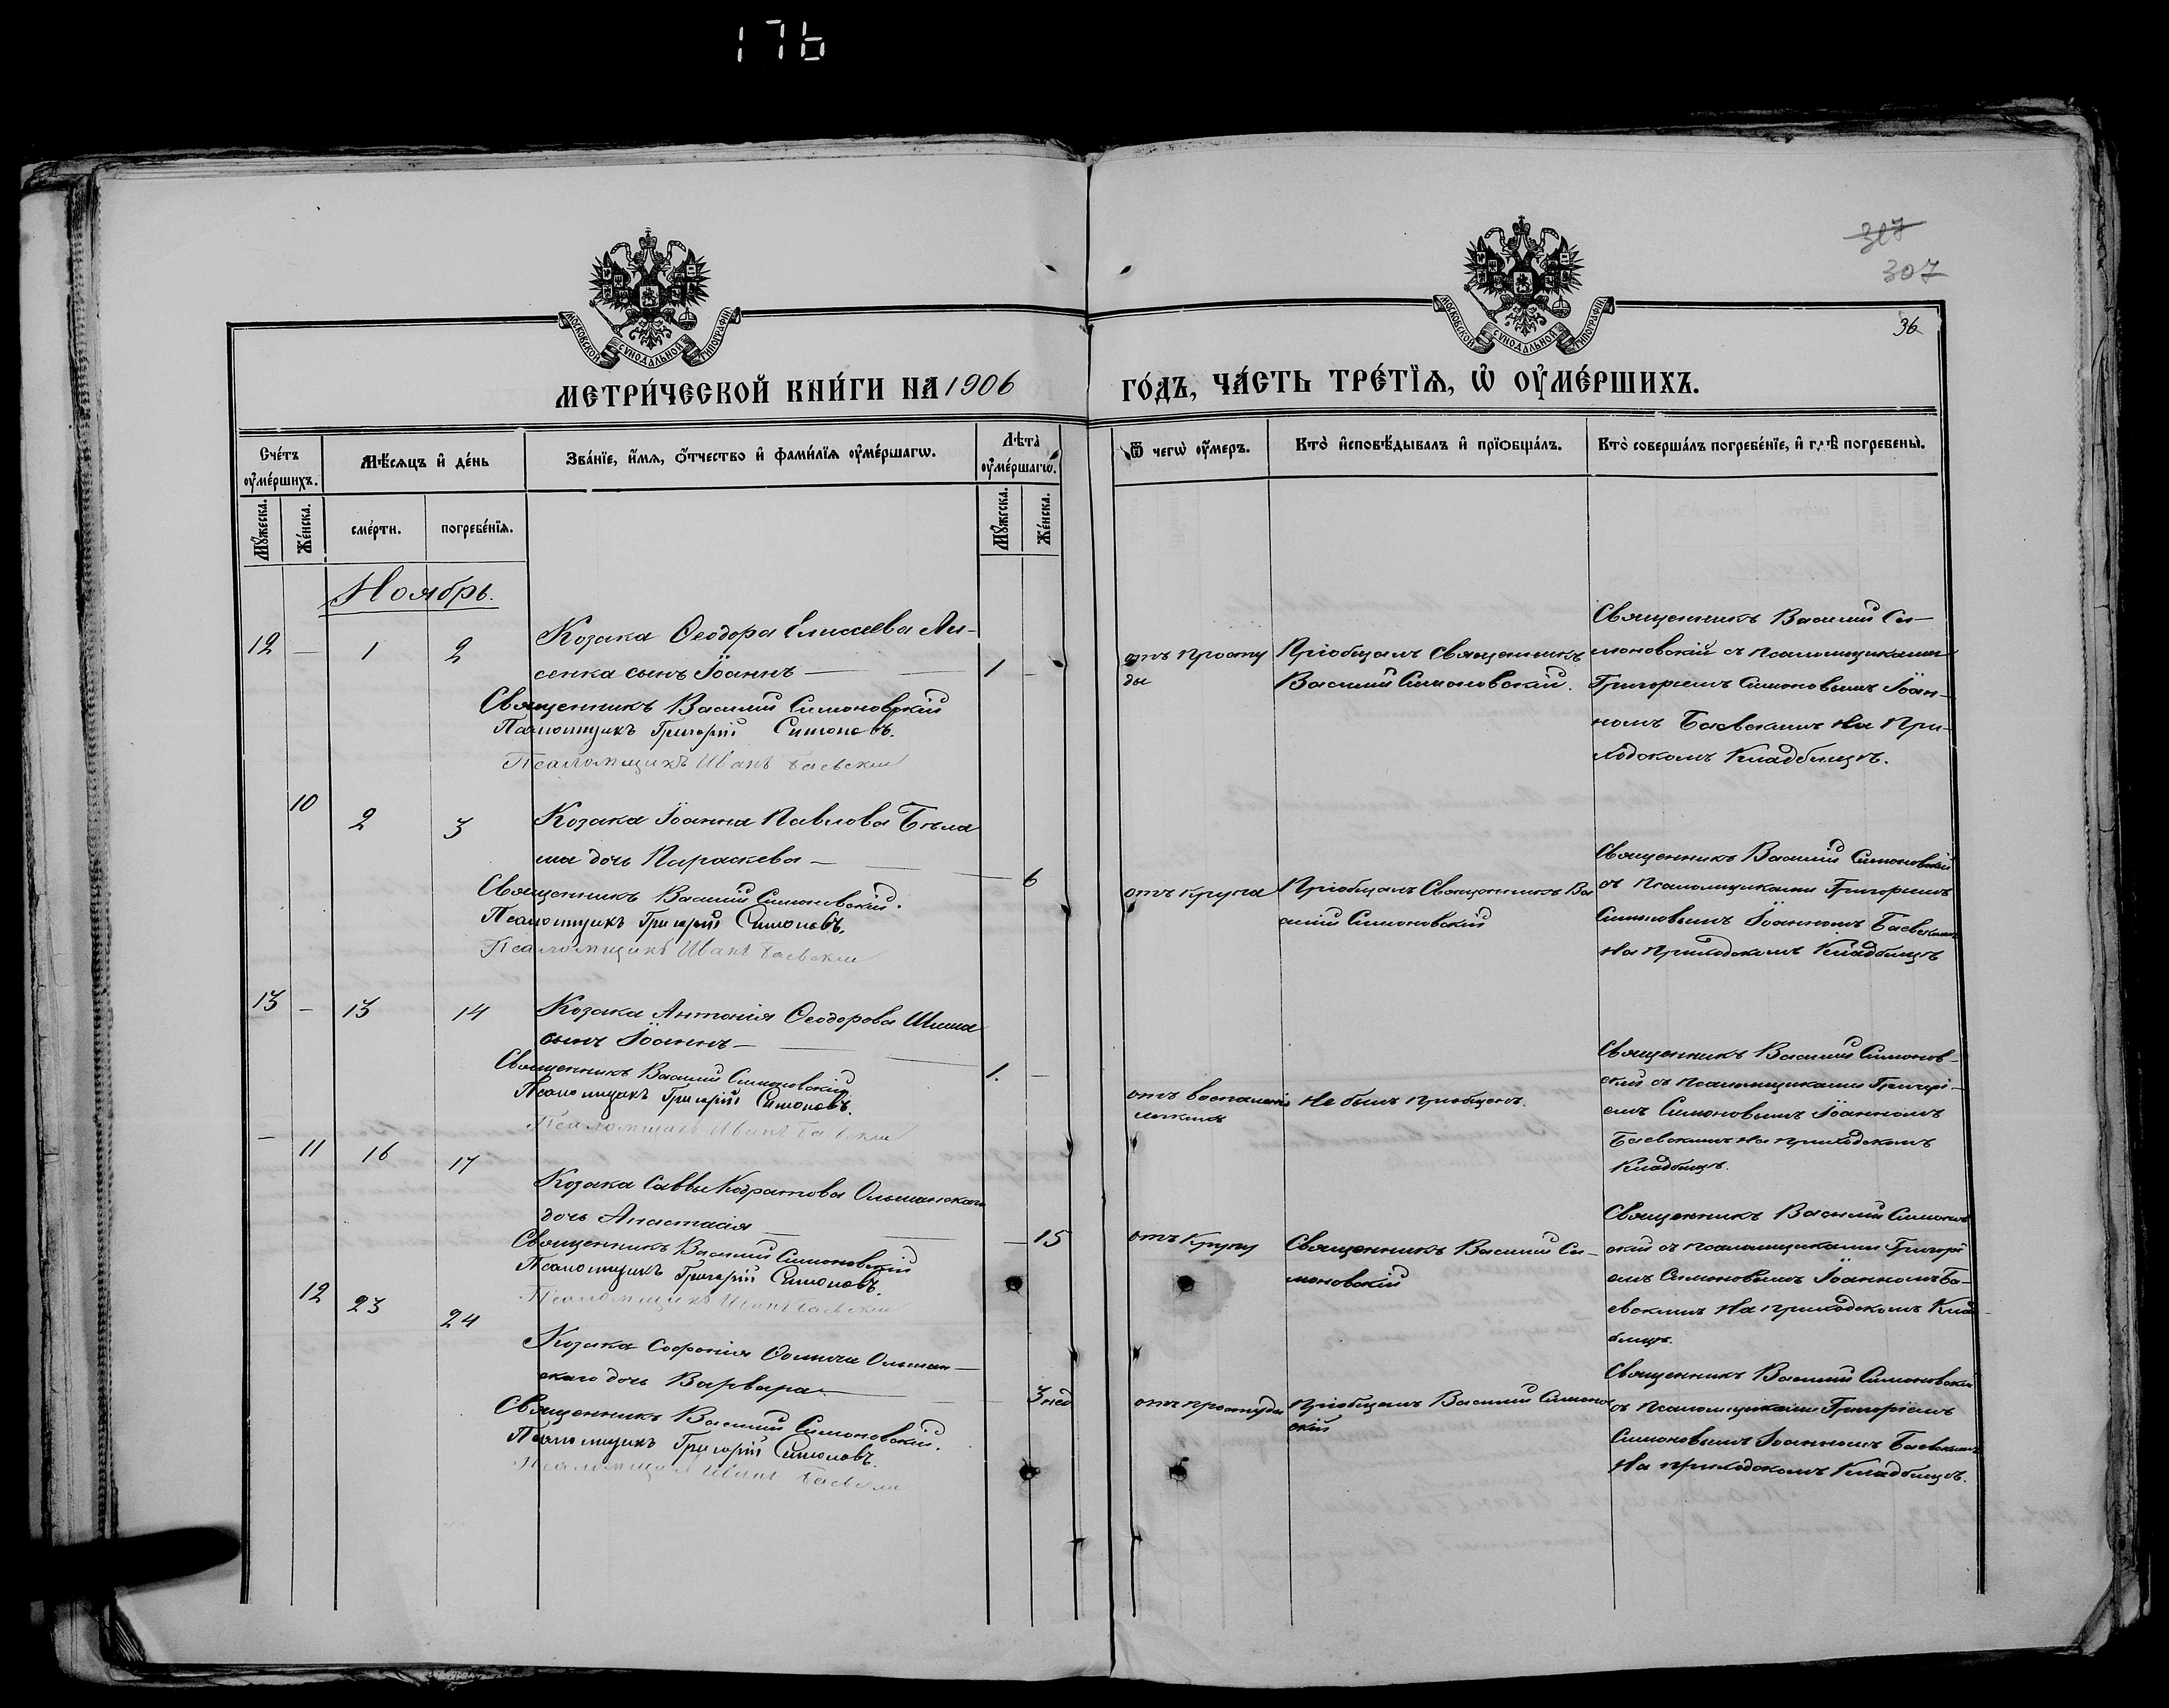 176
307
307
36
МОСКОВСКОЙ СѴНОДАЛЬНОЙ ТИПОГРАФІИ
МОСКОВСКОЙ СѴНОДАЛЬНОЙ ТИПОГРАФІИ
МЕТРИ́ЧЕСКОЙ КНИ́ГИ НА 1906
ГО́ДЪ, ЧА́СТЬ ТРЕ́ТЇѦ, Ѽ ОУ҆МЕ́РШИХЪ.
Сче́тъ оу҆ме́ршихъ.
Мѣ́сѧцъ и҆ де́нь
Зва́нїе, и҆́мѧ, ѻ҆́тчество и҆ фами́лїѧ оу҆ме́ршагѡ.
Лѣ́та оу҆ме́ршагѡ.
Ѿ чегѡ̀ оу҆́меръ.
Кто̀ и҆сповѣ́дывалъ и҆ прїѡбща́лъ.
Кто̀ соверша́лъ погребе́нїе, и҆ гдѣ̀ погребены̀.
Мꙋ́жеска.
Же́нска.
сме́рти.
погребе́нїѧ.
Мꙋ́жеска.
Же́нска.
Ноябрь.
12 — 1 2
Козака Ѳеодора Елисеева Ли-
сенка сынъ Іоаннъ —
1 —
Священникъ Василий Симоновский
Псаломщикъ Григорій Симоновъ.
Псаломщикъ Иванъ Баевский
отъ просту
ды
Пріобщалъ Священникъ
Василий Симоновский.
Священникъ Василий Си-
моновский съ псаломщиками
Григориемъ Симоновымъ Іоан-
номъ Баевскимъ на При-
ходскомъ Кладбищѣ.
10 2 3
Козака Іоанна Павлова Бѣла
ша дочь Параскева —
6
Священникъ Василий Симоновский.
Псаломщикъ Григорій Симоновъ.
Псаломщикъ Иванъ Баевский
отъ крупа
Пріобщалъ Священникъ Ва
силий Симоновский
Священникъ Василий Симоновский
съ Псаломщиками Григориемъ
Симоновымъ Іоанномъ Баевскимъ
на Приходскомъ Кладбищѣ
13 — 13 14
Козака Антонія Ѳеодорова
сынъ Іоаннъ —
1. —
Священникъ Василий Симоновский
Псаломщикъ Григорій Симоновъ.
Псаломщикъ Иванъ Баевский
отъ воспаленія
легкихъ
не былъ пріобщенъ.
Священникъ Василий Симонов-
ский съ псаломщиками Григорі-
емъ Симоновымъ Іоанномъ
Баевскимъ на приходскомъ
Кладбищѣ.
— 11 16 17
Козака Саввы Кодратова Ольшанскаго
дочь Анастасія
— 15
Священникъ Василий Симоновский
Псаломщикъ Григорій Симоновъ.
Псаломщикъ Иванъ Баевский
отъ Крупу
Священникъ Василий Си-
моновский
Священникъ Василий Симонов
ский съ псаломщиками Григорі
емъ Симоновымъ Іоанномъ Ба-
евскимъ на приходскомъ Клад
бищѣ.
12 23 24
Козака Софронія Ольшан-
скаго дочь Варвара.
3 нед
Священникъ Василий Симоновский.
Псаломщикъ Григорій Симоновъ.
Псаломщикъ Иванъ Баевский
отъ простуды
Пріобщалъ Василий Симонов
ский
Священникъ Василий Симоновский
съ Псаломщиками Григоріемъ
Симоновымъ Іоанномъ Баевскимъ
на приходскомъ Кладбищѣ.